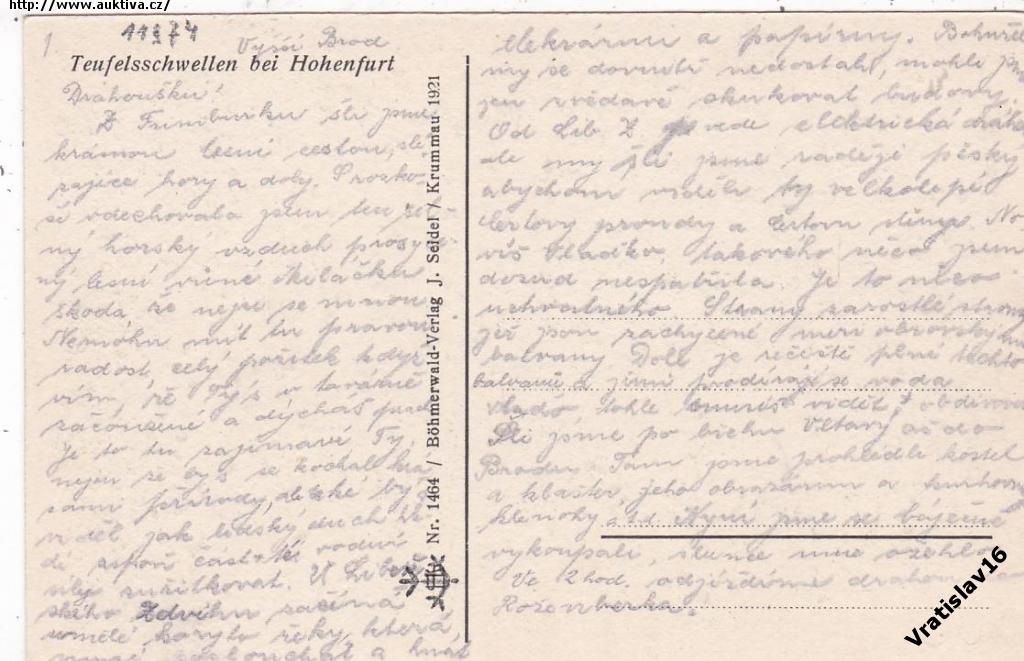 http://www.auktiva.cz/
1
Vyšší Brod
Teufelsschwellen bei Hohenfurt
Drahoušku!
Z šli jsme
krásnou lesní cestou, sle
hory a doly. S rozko-
ší vdechovala jsem ten
ný horský vzduch prosyce-
ný lesní vůně Miláčku
škoda, že nejsi se mnou
Nemohu mít tu pravou
radost, celý když
vím, že Tys v továrně
a dýcháš prach
Je to tu zajímavé Ty,
nejen že by s se kochal krá
sami přírody, ale také by
viděl jak lidský duch
dí aspoň část té vodní
síly zužitkovat. U
ského Zdvihu začíná
umělé koryto řeky, která
a hnát
Nr. 1464 / Böhmerwald-Verlag J. Seidel / Krummau 1921
elekrárnu a papírny. Bohužel
my se dovnitř nedostali, mohli jsme
jen zvědavě okukovat budovy.
Od Lib. Z vede elektrická dráha
ale my šli jsme raději pěšky
abychom viděli ty velkolepé
čertovy proudy a čertovu stěnu. No
víš Vladko, takového něco jsem
dosud nespatřila. Je to něco
úchvatného. Strany zarostlé stromy
jež jsou zachycené mezi obrovskými
balvany Dole je řečiště plné těchto
balvanů a jimi prodírá se voda
tohle musíš vidět, obdivovat
Šli jsme po břehu Vltavy až do
Brodu. Tam jsme prohlédli kostel
a klášter, jeho obrazárnu a knihovnu
klenoty a td. Nyní jsme se báječně
vykoupali slunce mne ožehlo
Ve 2 hod. odjíždíme drahou do
Rožemberka.
Vratislav16